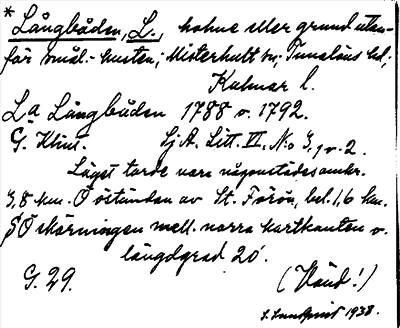 * Långbåden, L., holme eller grund utan-
för smål.-kusten; Misterhult sn; Tunaläns hd;
Kalmar l.
La Långbåden 1788 o. 1792.
G. Klint. Sj A. Litt. VI, N:o 3, 1 o. 2.
Läget torde vara någonstädes omkr.
3,8 km. O östanden av St. Förön, bel. 1,6 km.
SO skärningen mell. norra kartkanten o.
längdgrad 20'.
G. 29. (Vänd!)
S. Lundqvist 1938.